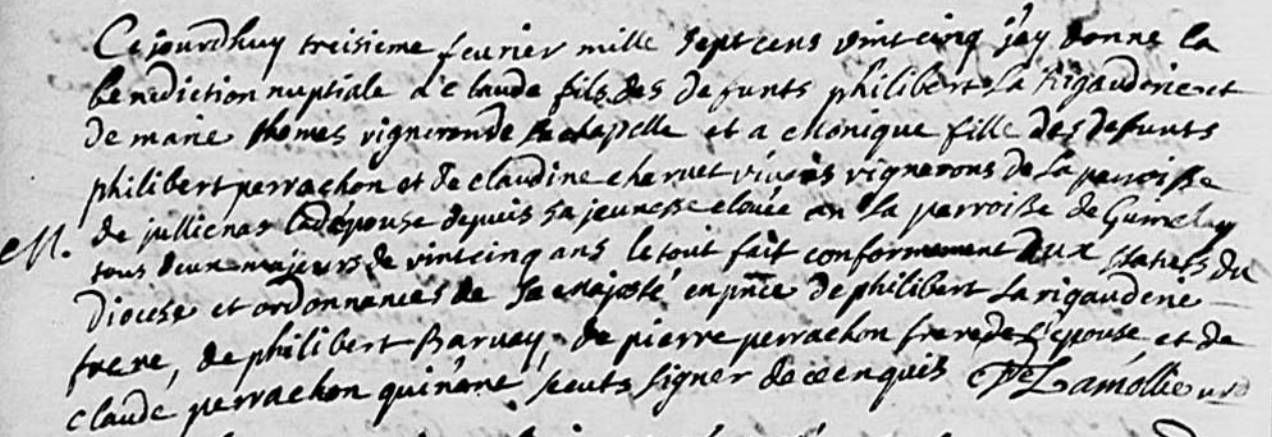 Cejourdhuy treisieme feurier mille sept cens vint cinq j'ay donne la
benediction nuptiale a claude fils des defunts philibert La Rigauderie et
de marie thomes vigneron de chapelle et a Monique fille des defunts
philibert perrachon et de claudine vivans vignerons de La parroisse
de jullienas ladépouse depuis sa jeunesse eleuée en La parroisse de
M. tous deux majeurs de vint cinq ans le tout fait conformement aux statuts du
Diocese et ordonnances de sa majesté en pnce de philibert La rigauderie
frere, de philibert Baruay, de pierre perrachon frere de L'épouse et de
claude perrachon qui n'ont sceuts signer de ce enquis